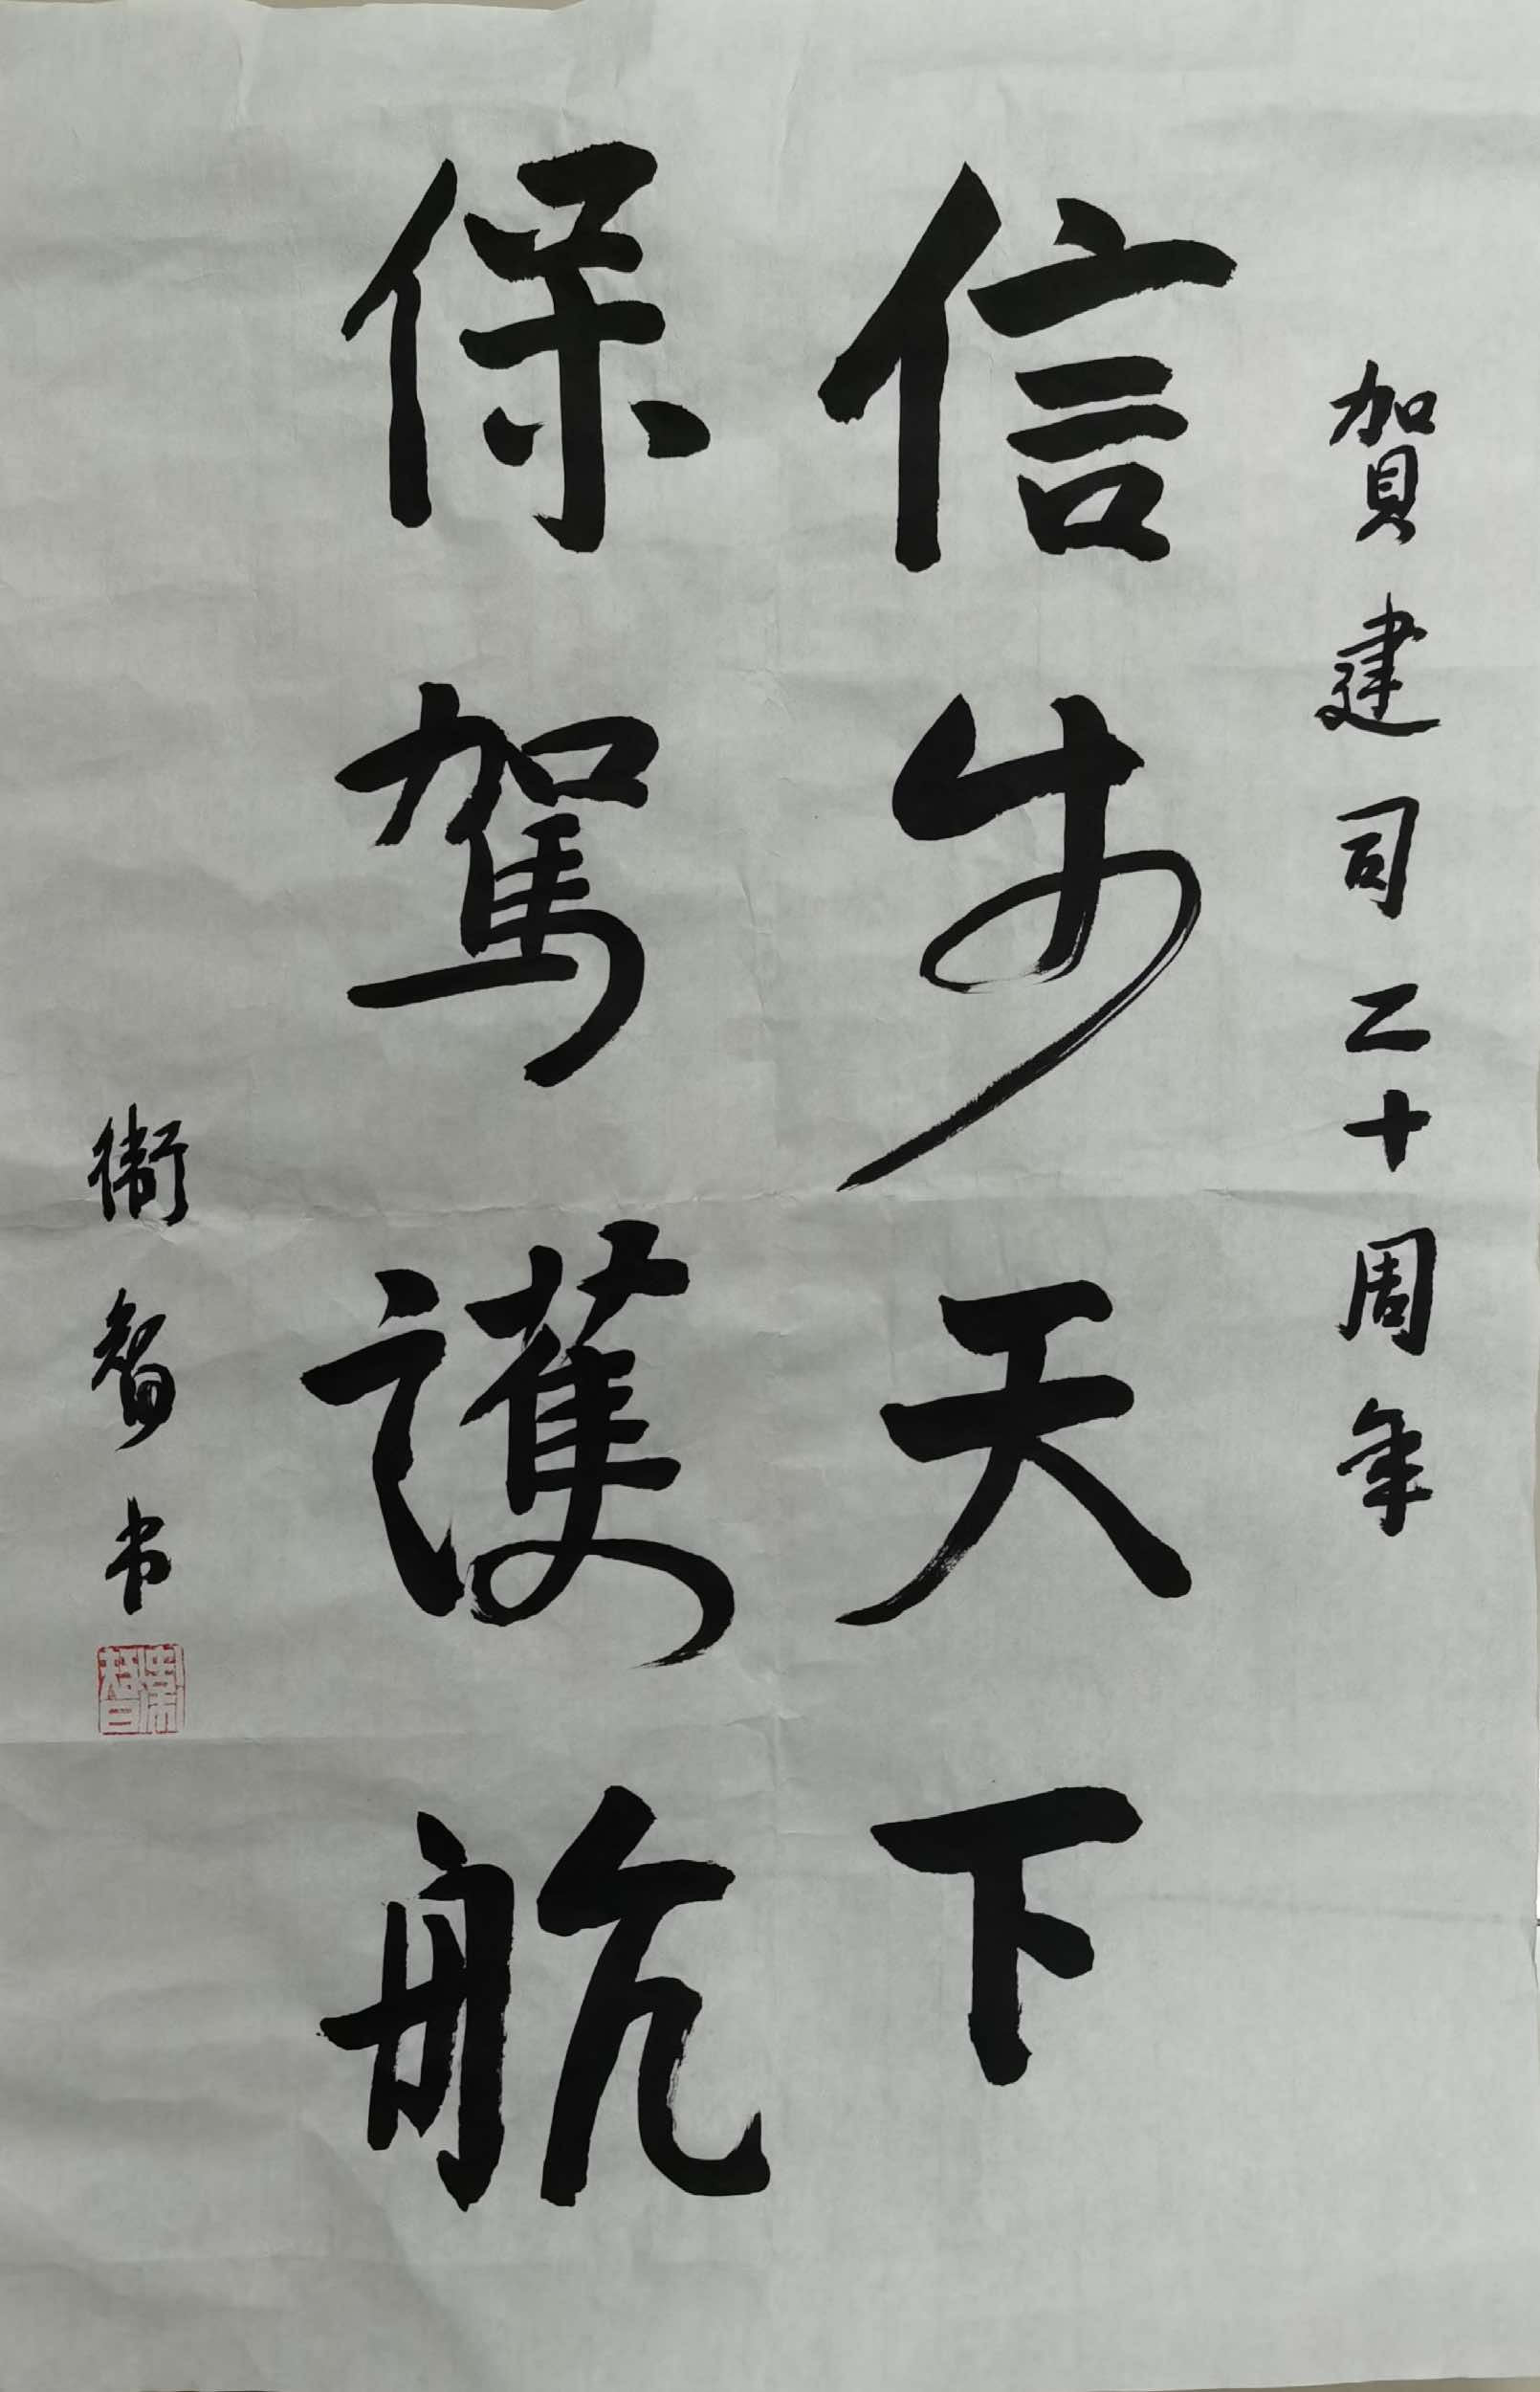 賀建司二十周年
信步天下
保駕護航
衛智书